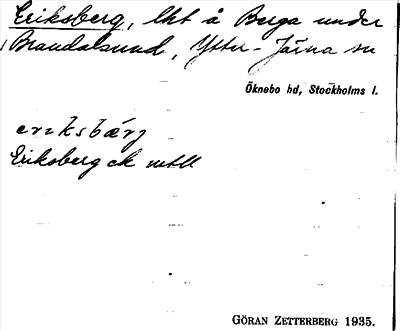 Eriksberg, lht å Berga under
Brandalsund, Ytter-Järna sn
Öknebo hd, Stockholms l.
eriksbærj
Eriksberg ek mtll
GÖRAN ZETTERBERG 1935.